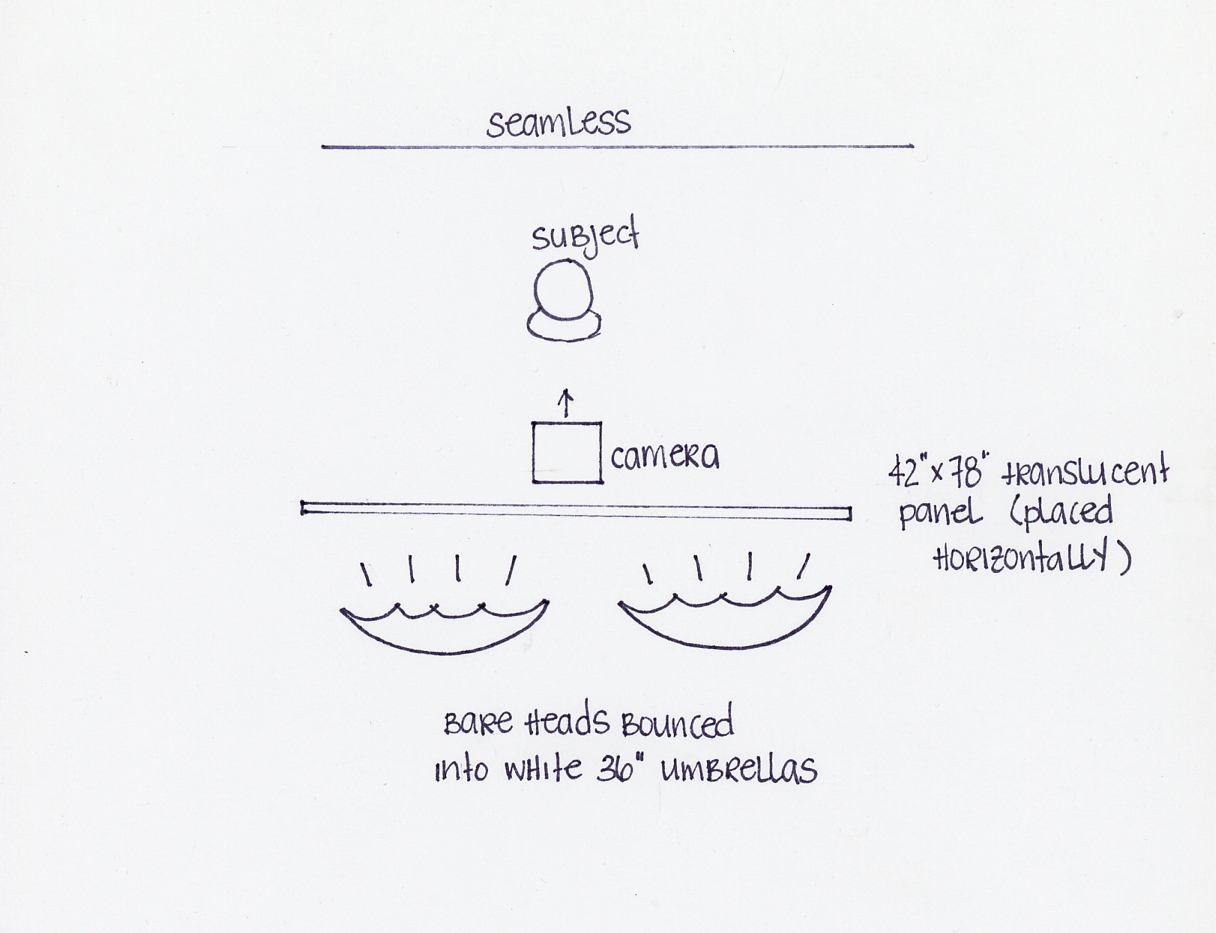 seamless
subject
camera
42"x78" translucent
panel (placed
horizontally)
Bare Heads Bounced
into white 36" umbrellas